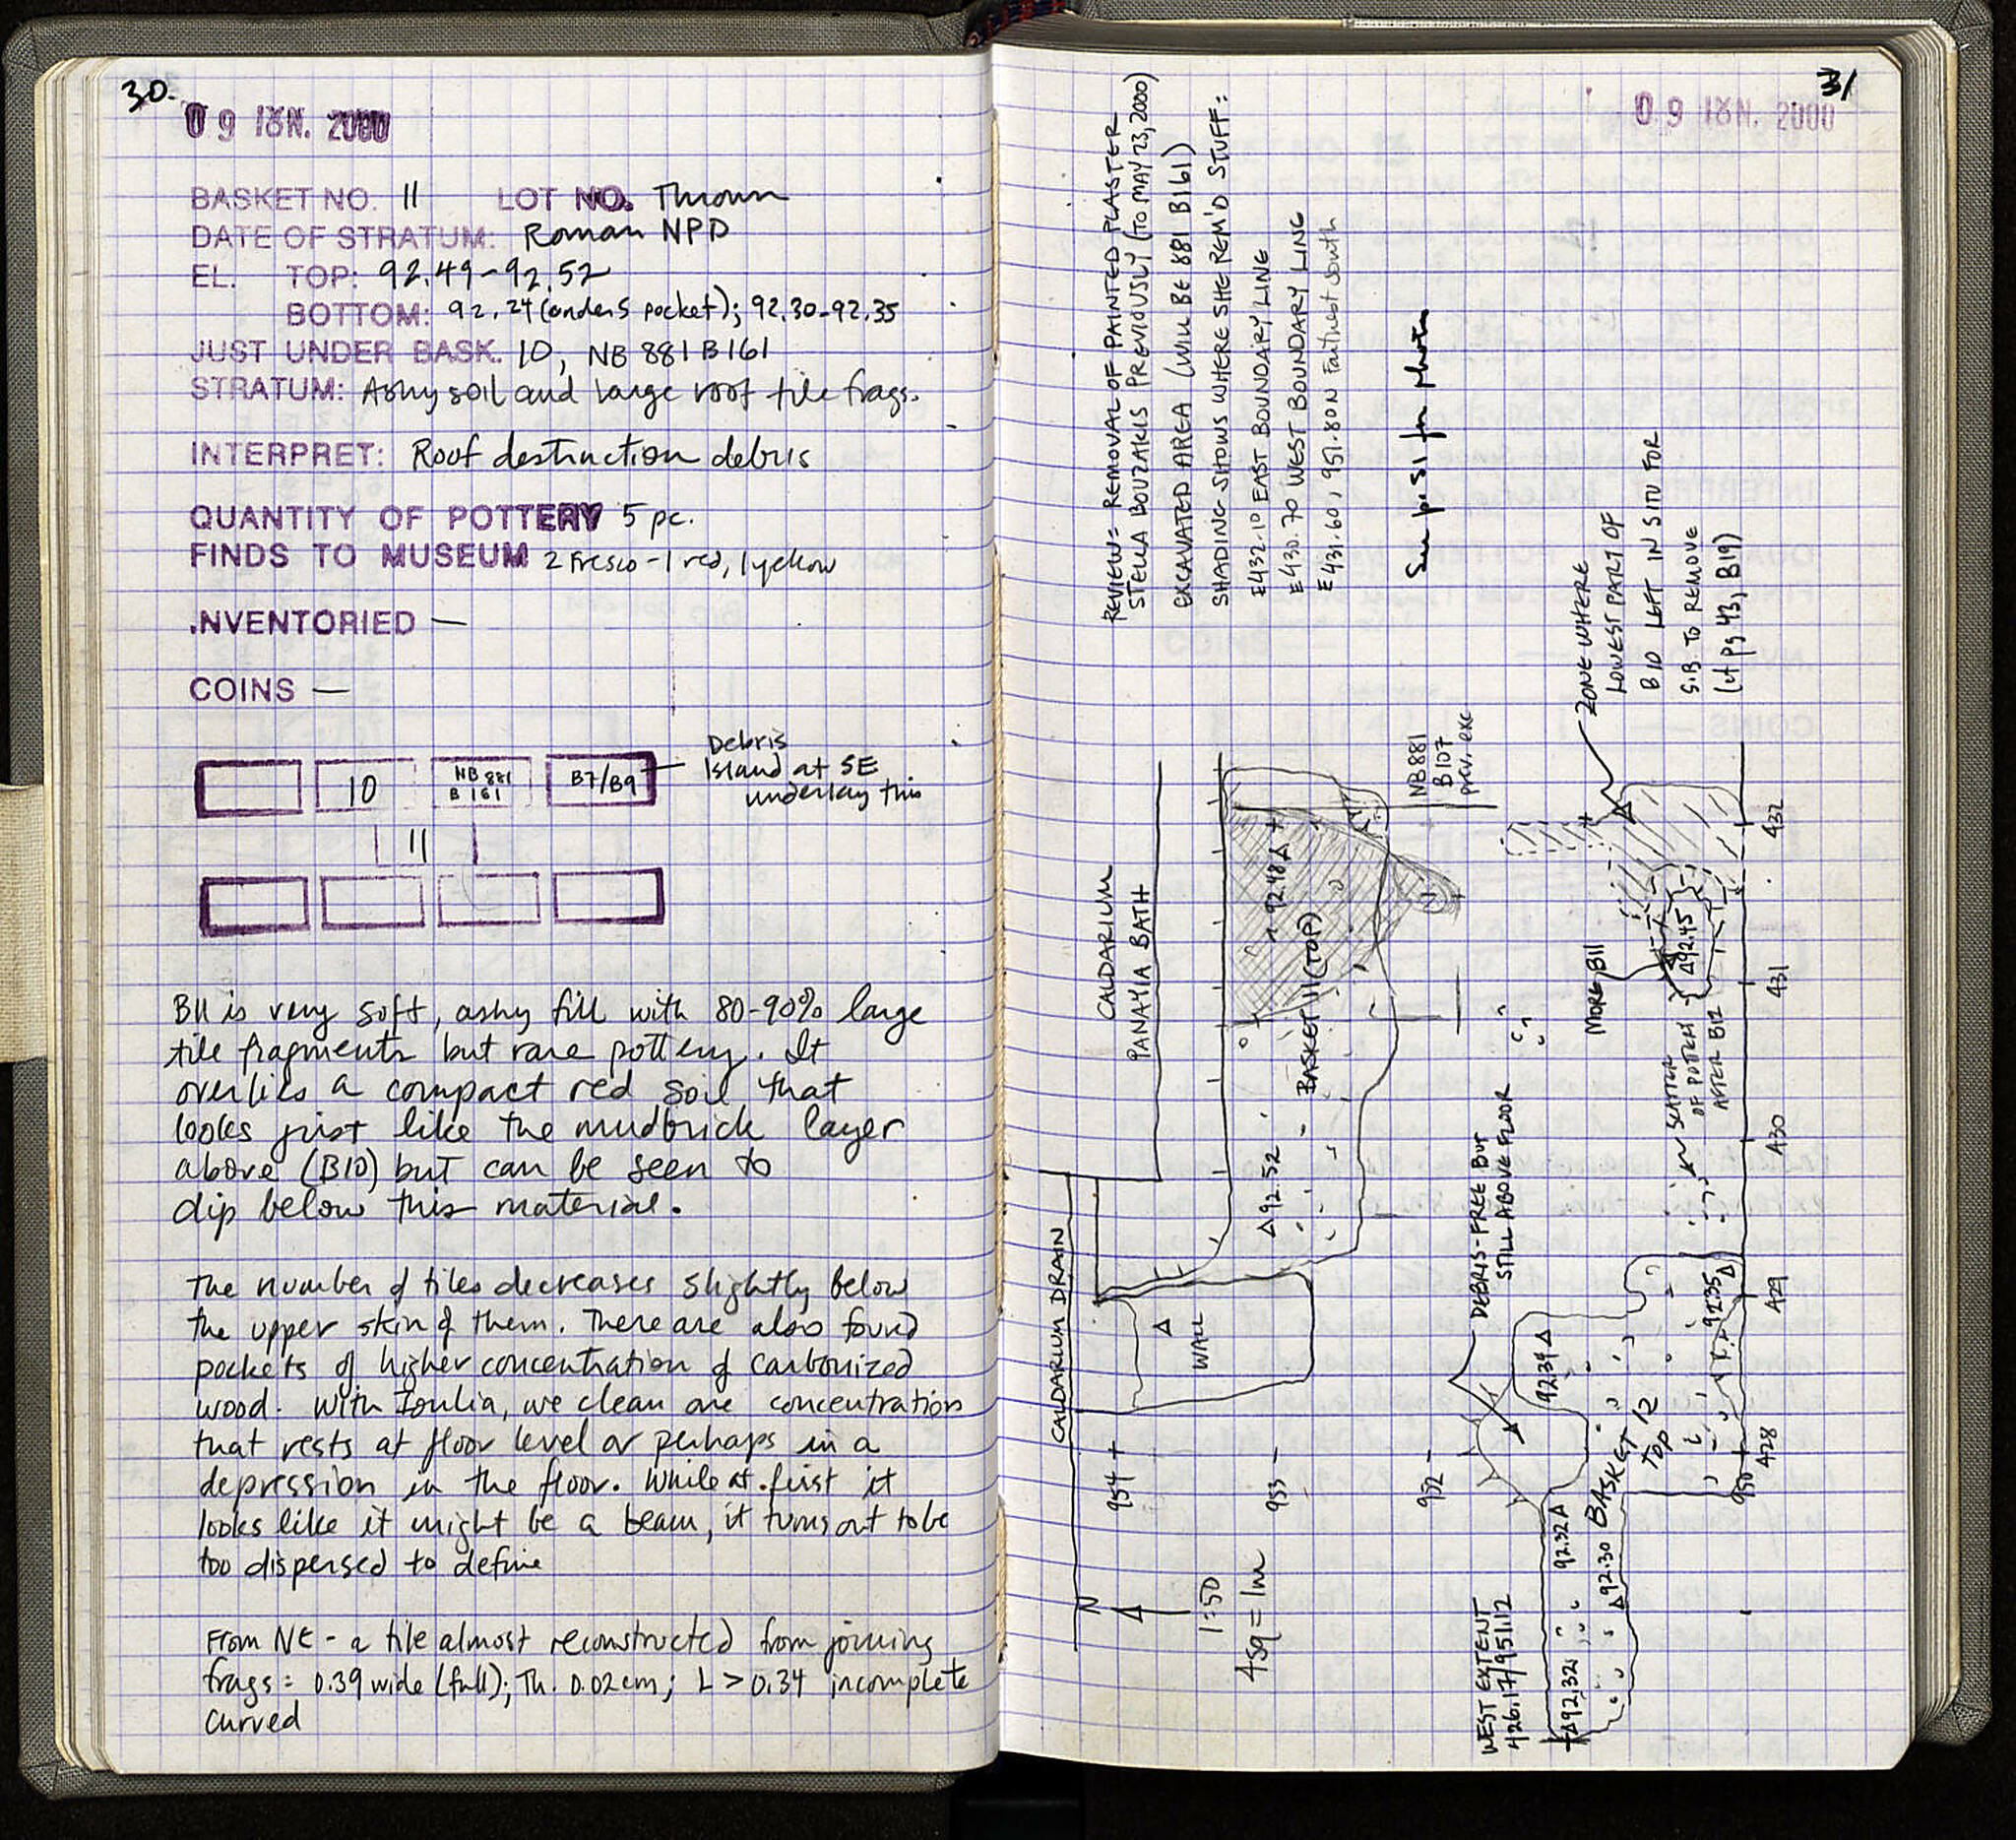 30.
09 IUN. 2000
BASKET NO. 11 LOT NO. Thrown
DATE OF STRATUM: Roman NPD
EL. TOP: 92.49-92.52
BOTTOM: 92.24 (under S pocket); 92.30-92.35
JUST UNDER BASK. 10, NB 881 B161
STRATUM: Ashy soil and large roof tile frags.
INTERPRET: Roof destruction debris
QUANTITY OF POTTERY 5 pc.
FINDS TO MUSEUM 2 Fresco - 1 red, 1 yellow
.NVENTORIED —
COINS —
10
NB 881
B 161
B7/B9
Debris
Island at SE
underlay this
11
B11 is very soft, ashy fill with 80-90% large
tile fragments but rare pottery. It
overlies a compact red soil that
looks just like the mudbrick layer
above (B10) but can be seen to
dip below this material.
The number of tiles decreases slightly below
the upper skin of them. There are also found
pockets of higher concentration of carbonized
wood. With Ioulia, we clean one concentration
that rests at floor level or perhaps in a
depression in the floor. While at first it
looks like it might be a beam, it turns out to be
too dispersed to define
From NE - a tile almost reconstructed from joining
frags = 0.39 wide (full); Th. 0.02 cm; L > 0.34 incomplete
curved
31
09 IUN. 2000
REVIEW = REMOVAL OF PAINTED PLASTER
STELLA BOUZAKIS PREVIOUSLY (TO MAY 23, 2000)
EXCAVATED AREA (WILL BE 881 B161)
SHADING SHOWS WHERE SHE REM'D STUFF:
E432.10 EAST BOUNDARY LINE
E430.70 WEST BOUNDARY LINE
E431.60, 951.80N Farthest South
See p. 51 for photo
ZONE WHERE
LOWEST PART OF
B10 LEFT IN SITU FOR
S.B. TO REMOVE
(cf pg 43, B19)
CALDARIUM
PANAYIA BATH
NB 881
B 107
prev. exc
92.48
BASKET 11 (TOP)
92.52
CALDARIUM DRAIN
WALL
MORE B11
92.45
SCATTER
OF POTTERY
AFTER B12
DEBRIS-FREE BUT
STILL ABOVE FLOOR
92.34
92.35
BASKET 12
TOP
92.32
92.30
92.32
WEST EXTENT
426.17/951.12
954
953
952
950
428
429
430
431
432
N
1:50
4sq = 1m